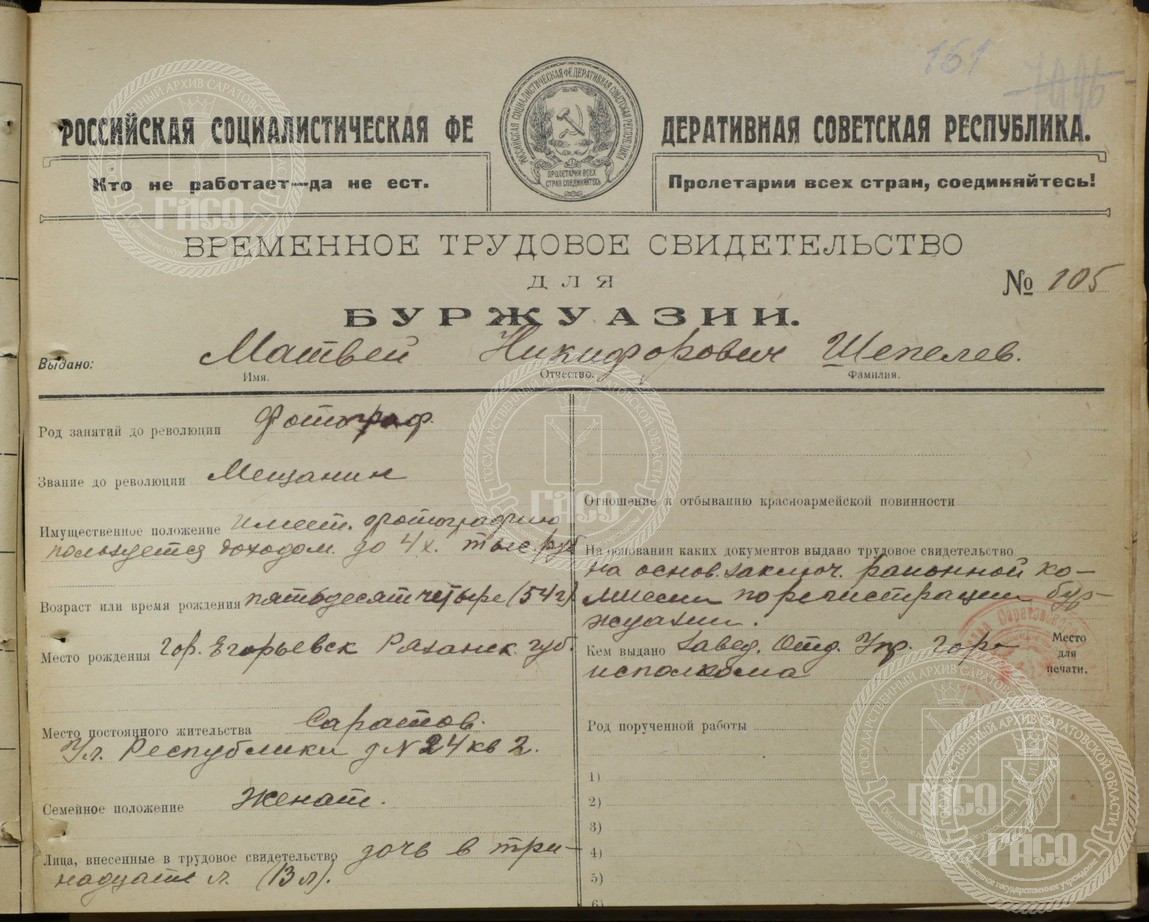 161
РОССИЙСКАЯ СОЦИАЛИСТИЧЕСКАЯ ФЕ ДЕРАТИВНАЯ СОВЕТСКАЯ РЕСПУБЛИКА.
РОССИЙСКАЯ СОЦИАЛИСТИЧЕСКАЯ ФЕДЕРАТИВНАЯ СОВЕТСКАЯ РЕСПУБЛИКА
ПРОЛЕТАРИИ ВСЕХ
СТРАН СОЕДИНЯЙТЕСЬ
Кто не работает—да не ест.
Пролетарии всех стран, соединяйтесь!
ВРЕМЕННОЕ ТРУДОВОЕ СВИДЕТЕЛЬСТВО
ДЛЯ
№ 105
БУРЖУАЗИИ.
Выдано: Матвей Никифорович Шепелев.
Имя. Отчество. Фамилия.
Род занятий до революции Фотограф.
Звание до революции Мещанин
Имущественное положение имеет. фотографию
пользуется доходом. до 4х. тыс. руб
Возраст или время рождения пятьдесят четыре (54 г)
Место рождения гор. Егорьевск Рязанск губ.
Место постоянного жительства Саратов.
Ул. Республики д № 24 кв 2.
Семейное положение Женат.
Лица, внесенные в трудовое свидетельство дочь в три-
надцать л. (13 л).
Отношение к отбыванию красноармейской повинности
На основании каких документов выдано трудовое свидетельство
на основ. заключ. районной ко-
миссии по регистрации бур-
жуазии.
Кем выдано Завед. Отд. Упр. Гор-
исполкома
Место
для
печати.
Род порученной работы
1)
2)
3)
4)
5)
6)
ГОСУДАРСТВЕННЫЙ АРХИВ САРАТОВСКОЙ ОБЛАСТИ
ГАСО
ГОСУДАРСТВЕННЫЙ АРХИВ САРАТОВСКОЙ ОБЛАСТИ
ГАСО
ГОСУДАРСТВЕННЫЙ АРХИВ САРАТОВСКОЙ ОБЛАСТИ
ГАСО
ГОСУДАРСТВЕННЫЙ АРХИВ САРАТОВСКОЙ ОБЛАСТИ
ГАСО